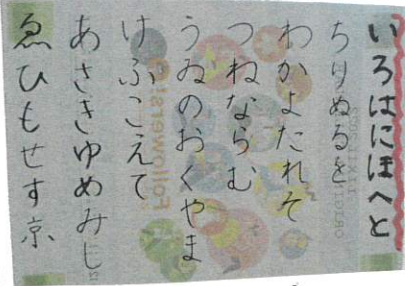 いろはにほへと
ちりぬるを
わかよたれそ
つねならむ
うゐのおくやま
けふこえて
あさきゆめみし
ゑひもせす京
Followers!